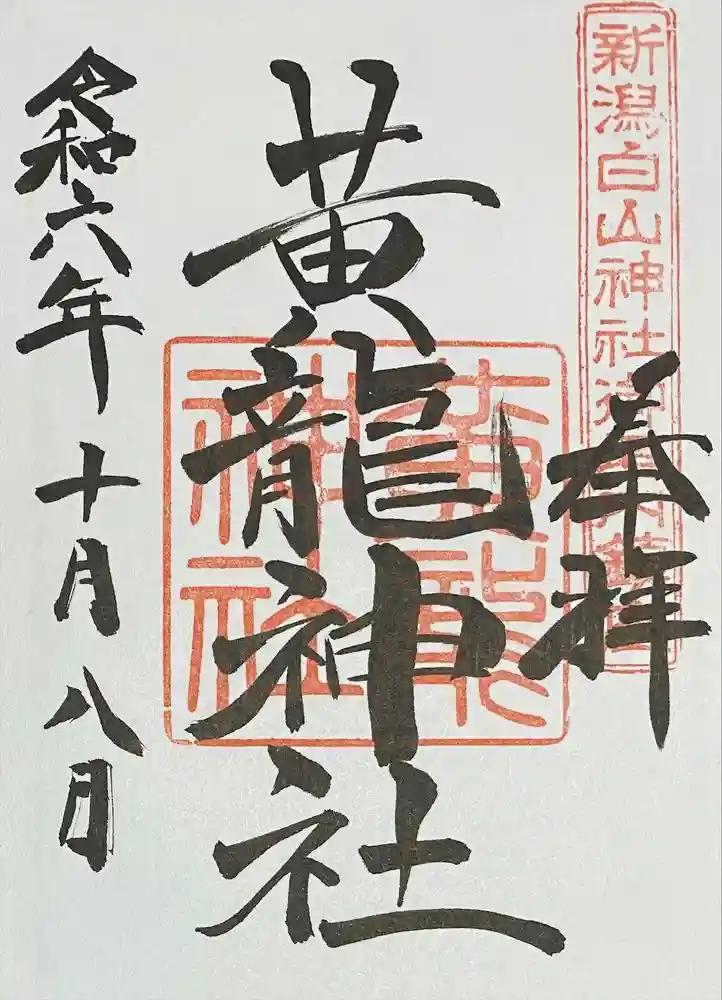 新潟白山神社
奉拝
黄龍神社
黄龍
神社
令和六年十月八日